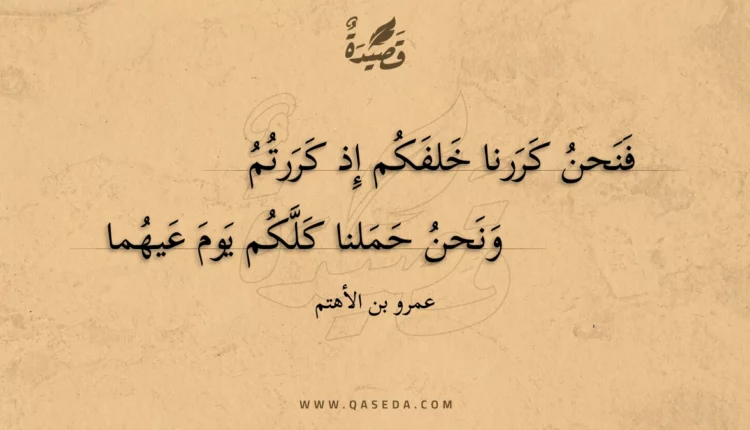 قَصِيْدَةٌ
فَنَحنُ كَرَرنا خَلفَكُم إِذ كَرَرتُمُ
وَنَحنُ حَمَلنا كَلَّكُم يَومَ عَيهُما
عمرو بن الأهتم
WWW.QASEDA.COM